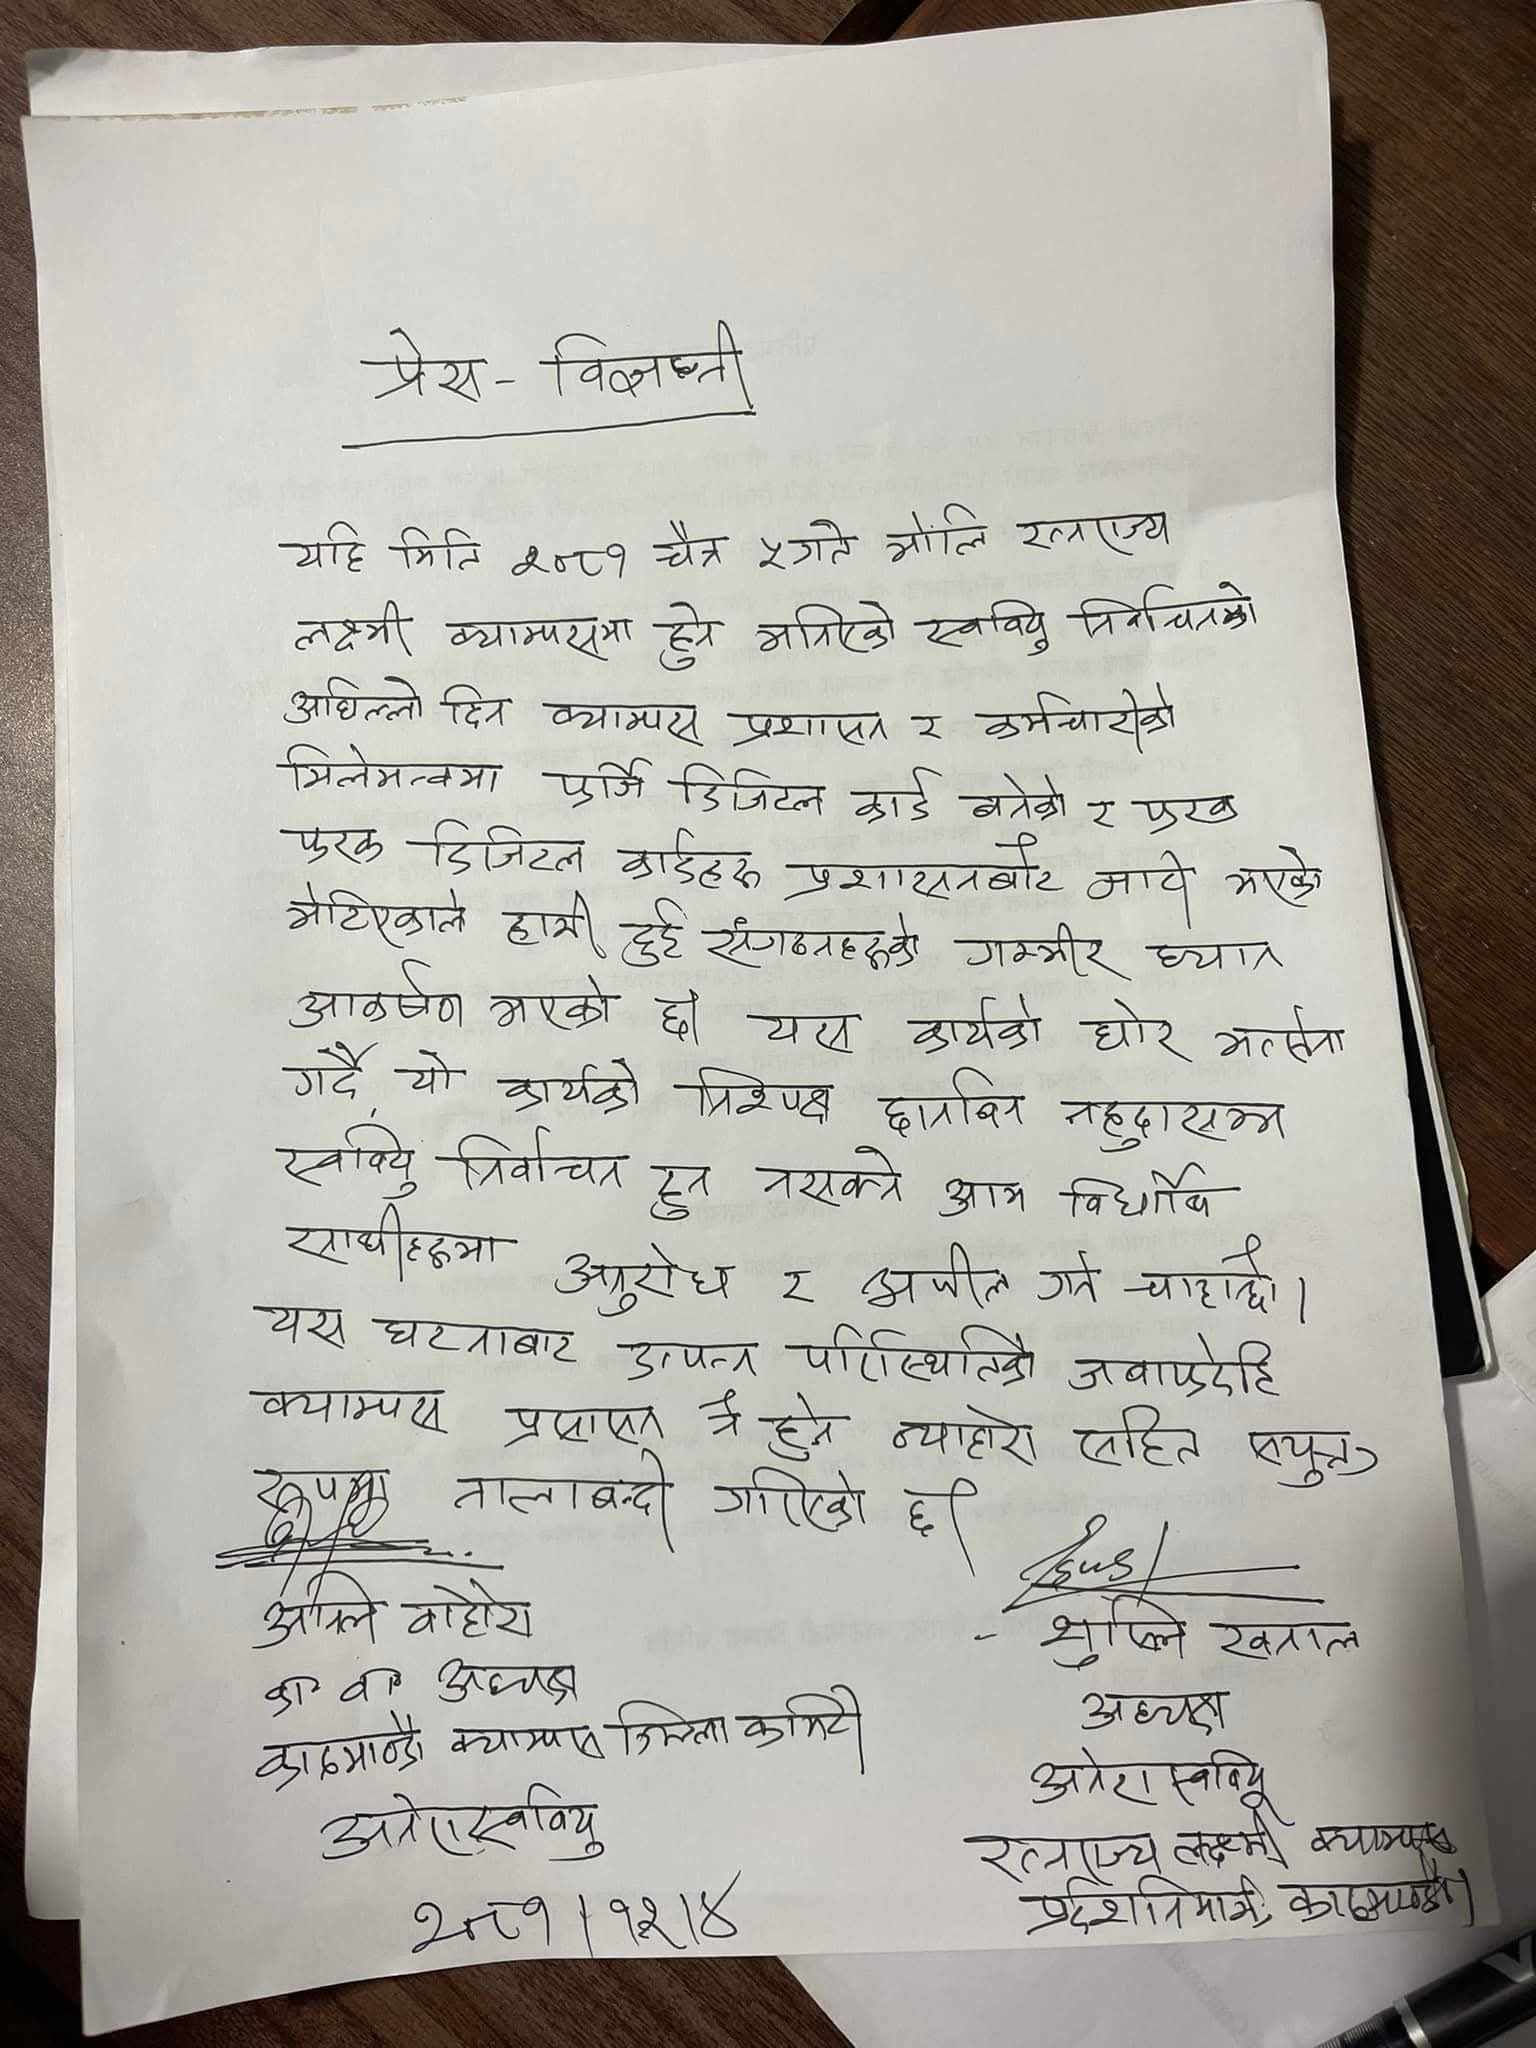 प्रेस - विज्ञप्ती
यहि मिति २०८१ चैत्र ५ गते भोलि रत्नराज्य
लक्ष्मी क्याम्पसमा हुने भनिएको स्ववियु निर्वाचनको
अघिल्लो दिन क्याम्पस प्रशासन र कर्मचारीको
मिलेमत्वमा फर्जि डिजिटल कार्ड बनेको र फरक
फरक डिजिटल कार्डहरू प्रशासनबाटै जारी भएको
भेटिएकाले हामी दुई संगठनहरूको गम्भीर ध्यान
आकर्षण भएको छ। यस कार्यको घोर भर्त्सना
गर्दै, यो कार्यको निश्पक्ष छानबिन नहुदासम्म
स्ववियु निर्वाचन हुन नसक्ने आम विद्यार्थी
साथीहरूमा अनुरोध र अपील गर्न चाहान्छौ।
यस घटनाबाट उत्पन्न परिस्थितिको जवाफदेहि
क्याम्पस प्रसासन नै हुने ब्याहोरा सहित सयुक्त
रूपमा तालाबन्दी गरिएको छ।
अनिल वोहोरा
का॰ वा॰ अध्यक्ष
काठमाण्डौ क्याम्पस जिल्ला कमिटी
अनेरास्ववियु
२०८१।१२।४
- सुशिल खनाल
अध्यक्ष
अनेरास्ववियू
रत्नराज्य लक्ष्मी क्याम्पस
प्रर्दशनिमार्ग, काठमाण्डौ।